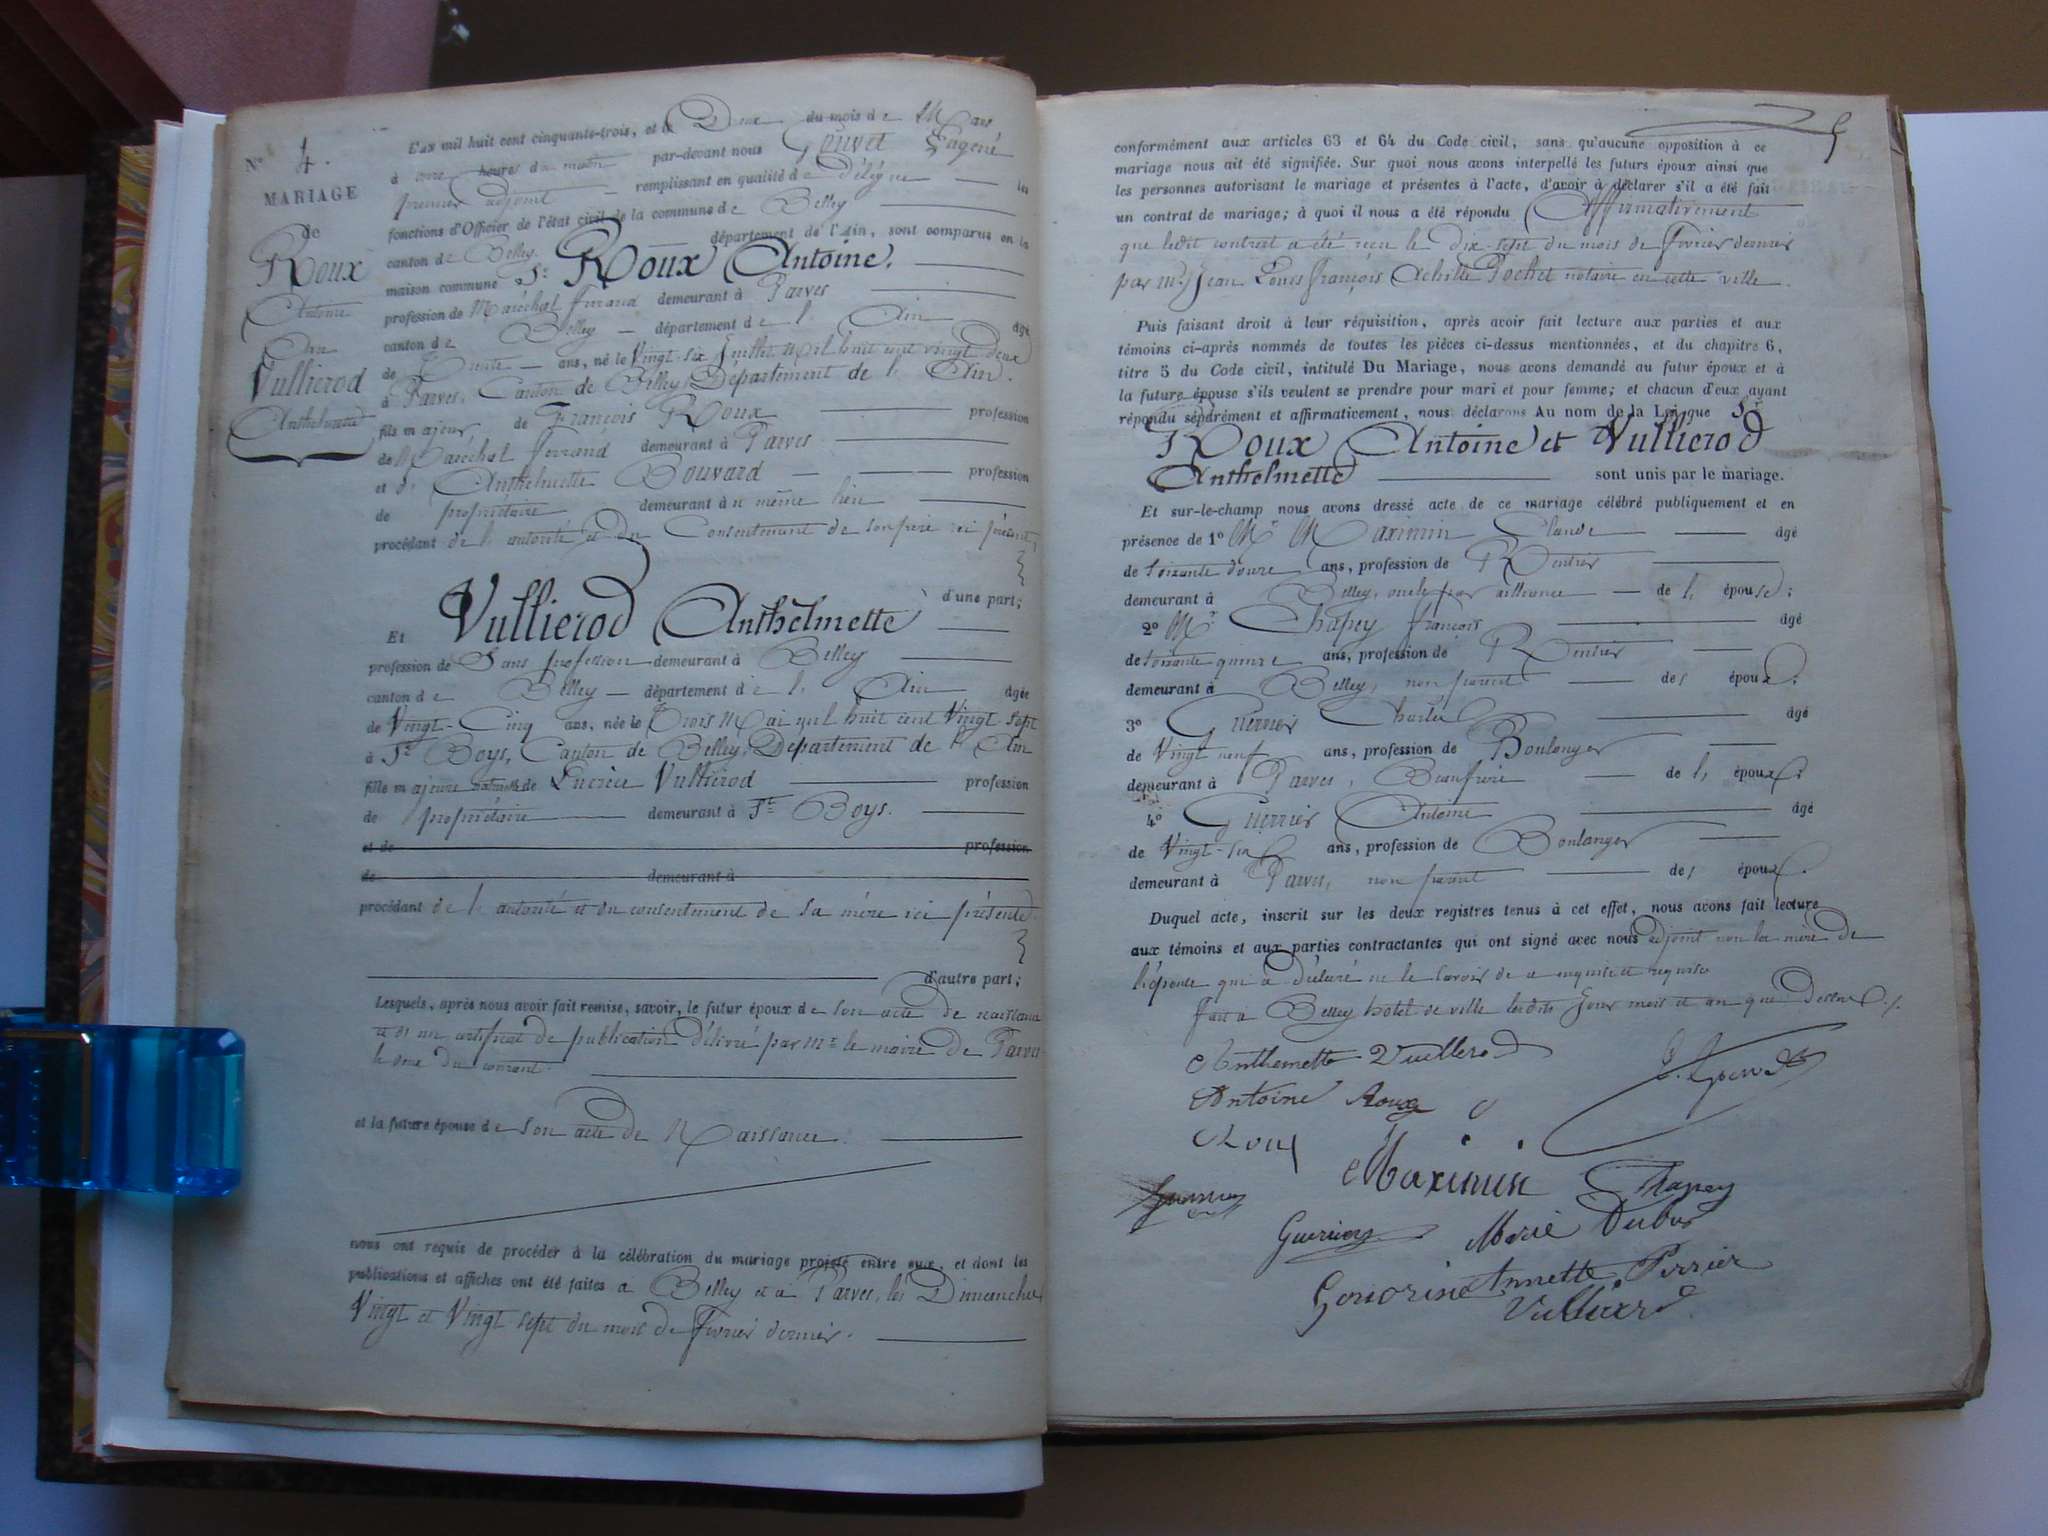 N° 4.
MARIAGE
de
Roux
Antoine
Vullierod
Anthelmette
L'an mil huit cent cinquante-trois, et le Deux du mois de Mars
à onze heures du matin par-devant nous Gouvet Eugène
premier adjoint remplissant en qualité de Délégué les
fonctions d'Officier de l'état civil de la commune de Belley
canton de Belley, département de l'Ain, sont comparus en la
maison commune Sr Roux Antoine.
profession de Maréchal ferrand demeurant à Parves
canton de Belley département de l' Ain âgé
de Trente ans, né le Vingt-six Juillet Mil huit cent vingt deux
à Parves, Canton de Belley, Département de l' Ain.
fils majeur de François Roux profession
de Maréchal ferrand demeurant à Parves
et d' Anthelmette Bouvard profession
de propriétaire demeurant au même lieu
procédant de l'autorité et du Consentement de son père ici présent,
d'une part;
Et Vullierod Anthelmette
profession de Sans profession demeurant à Belley
canton de Belley département de l' Ain âgée
de Vingt-Cinq ans, née le Trois Mai mil huit cent Vingt sept
à St Boys, Canton de Belley, Département de l' Ain
fille majeure naturelle de Lucrèce Vullierod profession
de propriétaire demeurant à St Boys.
et de profession
de demeurant à
procédant de l'autorité et du consentement de sa mère ici présente.
d'autre part;
Lesquels, après nous avoir fait remise, savoir, le futur époux de son acte de naissance
et d'un certificat de publication Délivré par Mr le maire de Parves
le du courant.
et la future épouse de son acte de Naissance.
nous ont requis de procéder à la célébration du mariage projeté entre eux, et dont les
publications et affiches ont été faites à Belley et à Parves, les Dimanches
Vingt et Vingt sept du mois de février dernier.
5
conformément aux articles 63 et 64 du Code civil, sans qu'aucune opposition à ce
mariage nous ait été signifiée. Sur quoi nous avons interpellé les futurs époux ainsi que
les personnes autorisant le mariage et présentes à l'acte, d'avoir à déclarer s'il a été fait
un contrat de mariage; à quoi il nous a été répondu Affirmativement
que ledit contrat a été reçu le dix-sept du mois de février dernier
par Me Jean Louis françois Achille Pochet notaire en cette ville.
Puis faisant droit à leur réquisition, après avoir fait lecture aux parties et aux
témoins ci-après nommés de toutes les pièces ci-dessus mentionnées, et du chapitre 6,
titre 5 du Code civil, intitulé Du Mariage, nous avons demandé au futur époux et à
la future épouse s'ils veulent se prendre pour mari et pour femme; et chacun d'eux ayant
répondu séparément et affirmativement, nous déclarons Au nom de la Loi que Sr
Roux Antoine et Vullierod
Anthelmette sont unis par le mariage.
Et sur-le-champ nous avons dressé acte de ce mariage célébré publiquement et en
présence de 1° Mr Maximin Claude âgé
de soixante douze ans, profession de Rentier
demeurant à Belley, oncle par alliance de l' épouse;
2° Mr Chapey françois âgé
de soixante quinze ans, profession de Rentier
demeurant à Belley, non parent des époux.
3° Guerrier Charles âgé
de Vingt neuf ans, profession de Boulanger
demeurant à Parves, Beaufrère de l' époux;
4° Guerrier Antoine âgé
de Vingt-six ans, profession de Boulanger
demeurant à Parves, non parent des époux.
Duquel acte, inscrit sur les deux registres tenus à cet effet, nous avons fait lecture
aux témoins et aux parties contractantes qui ont signé avec nous adjoint non la mère de
l'épouse qui a déclaré ne le savoir de ce enquise et requise
fait à Belley hotel de ville lesdits Jour mois et an que dessus./.
Anthemette Vuillerod
Antoine Roux
Roux
Maximin Chapey
Guerrier
Guerriers Marie Dubus
Honorine Annette Perrier